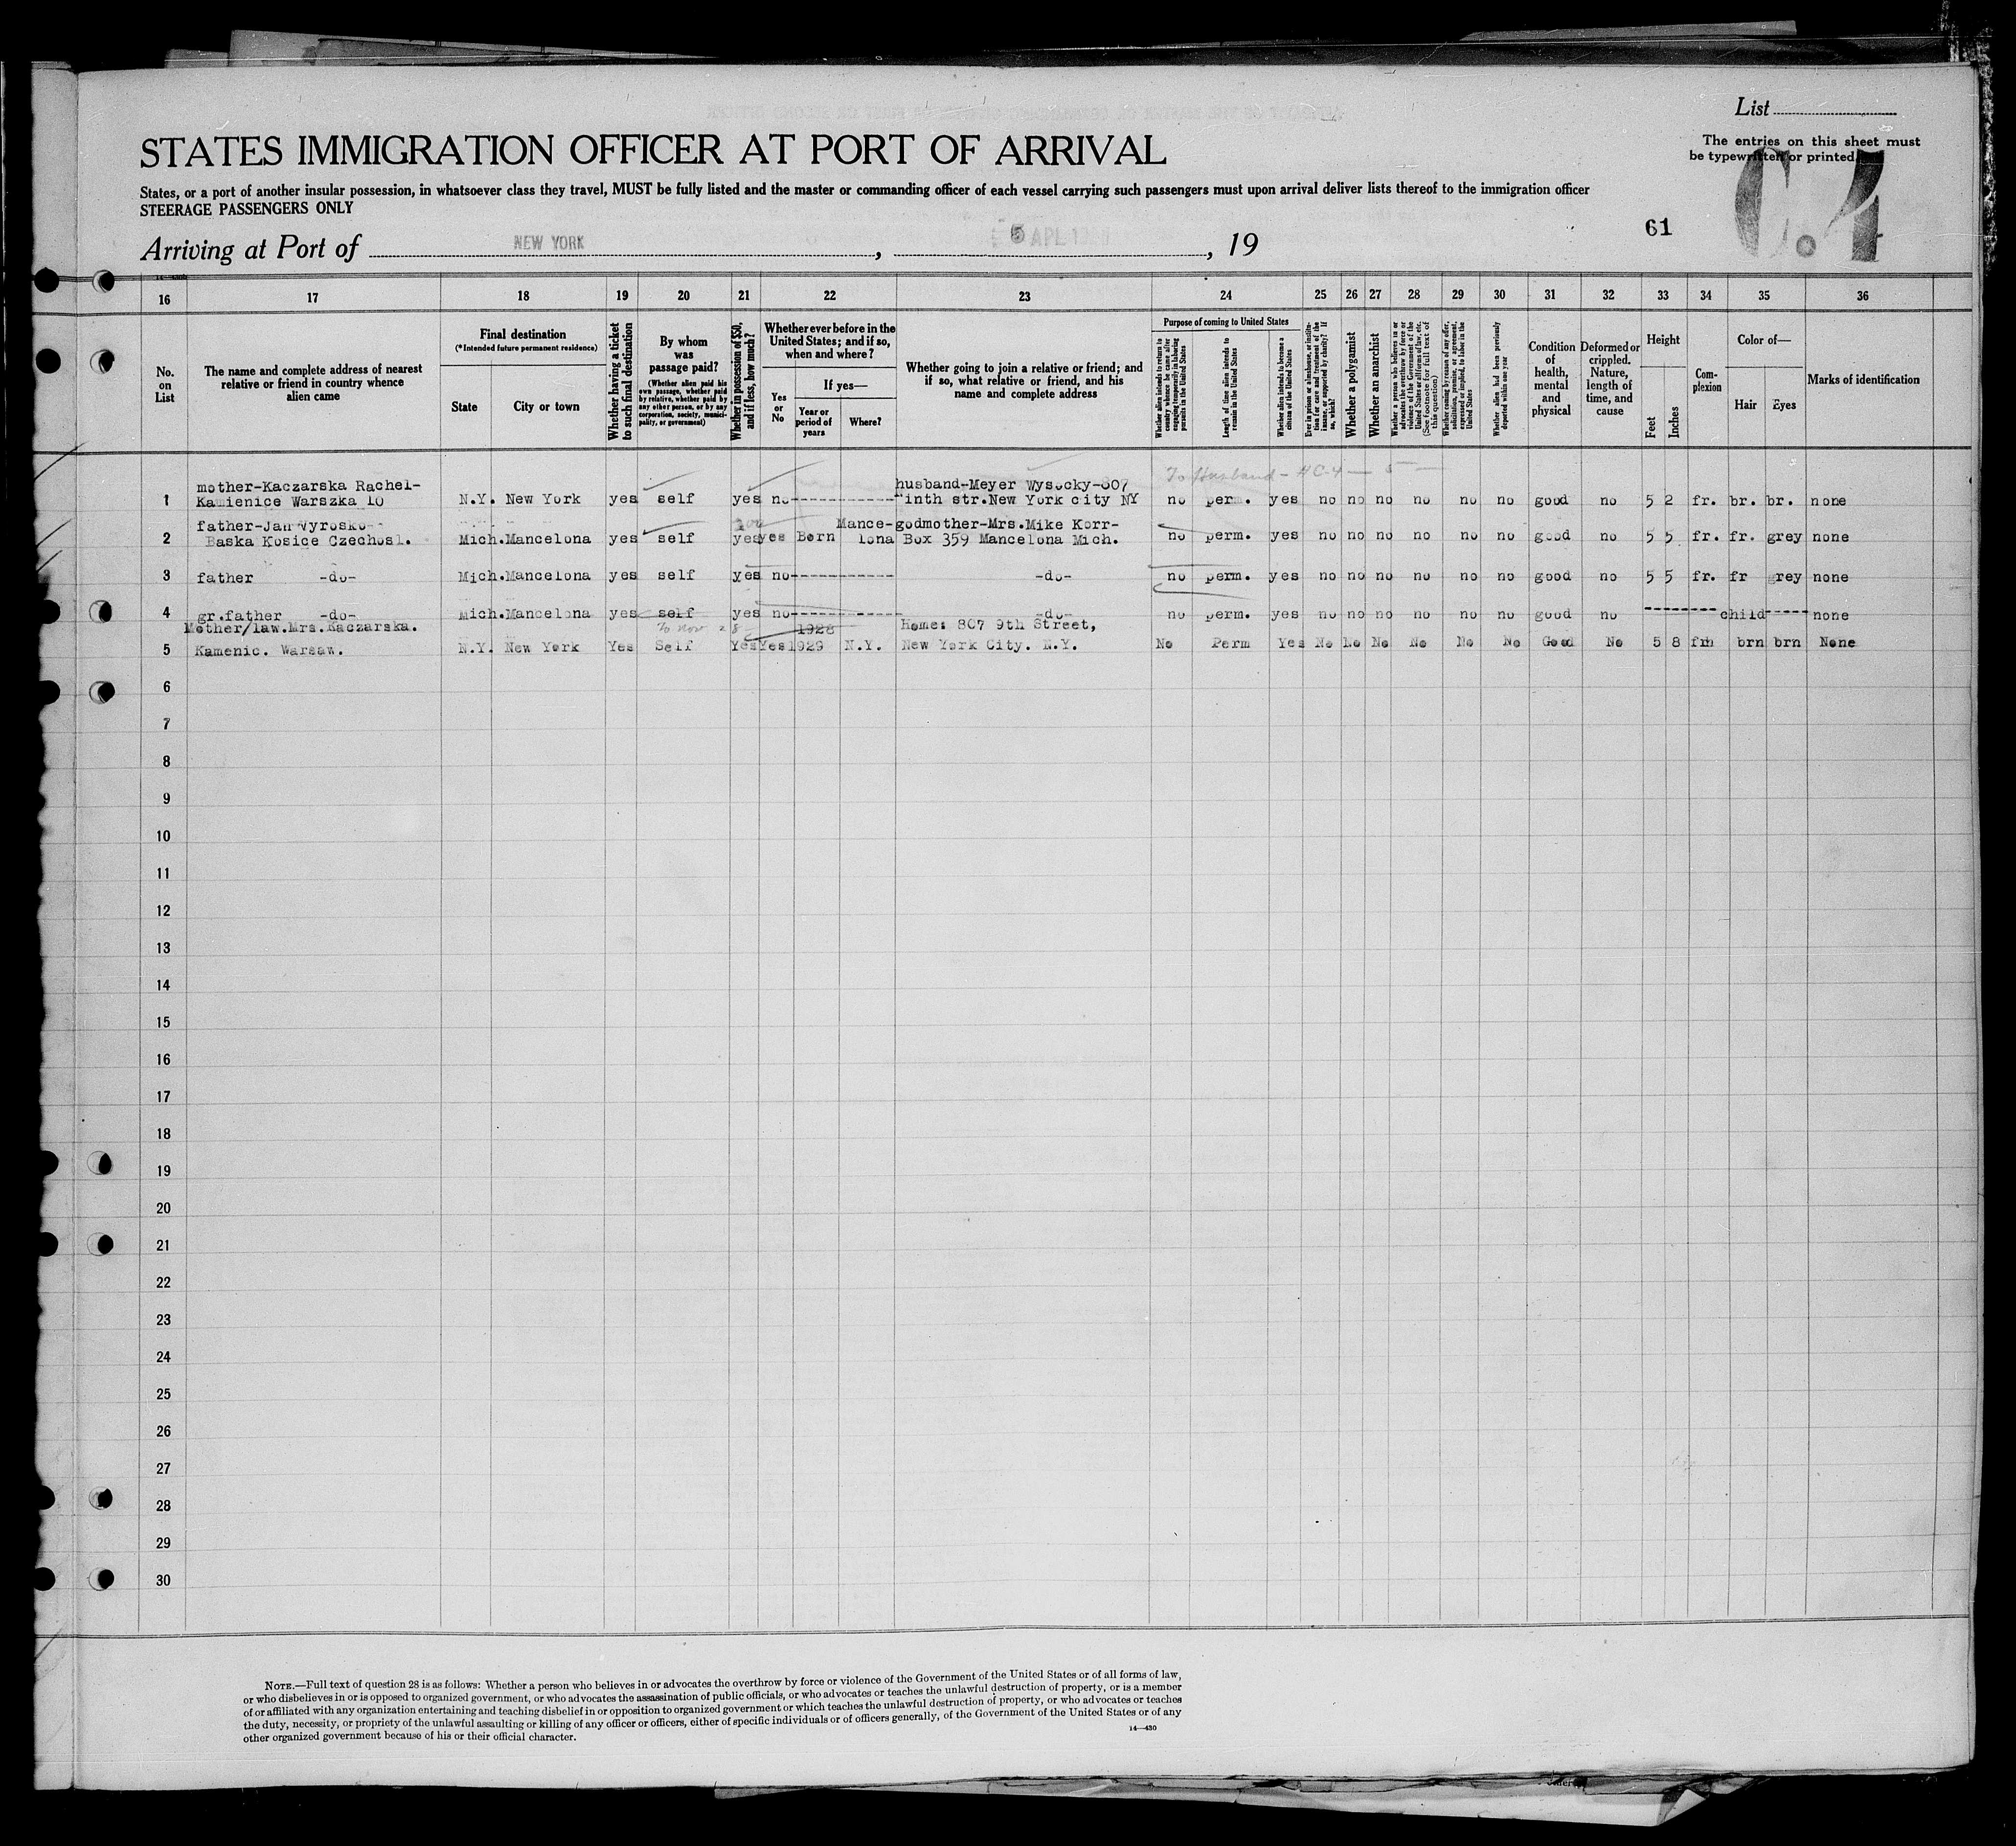 List
The entries on this sheet must
be typewritten or printed.
STATES IMMIGRATION OFFICER AT PORT OF ARRIVAL
States, or a port of another insular possession, in whatsoever class they travel, MUST be fully listed and the master or commanding officer of each vessel carrying such passengers must upon arrival deliver lists thereof to the immigration officer
STEERAGE PASSENGERS ONLY
C.4
61
Arriving at Port of NEW YORK, 5 APL, 19
14—430b
16 17 18 19 20 21 22 23 24 25 26 27 28 29 30 31 32 33 34 35 36
No. on List
The name and complete address of nearest relative or friend in country whence alien came
Final destination
(*Intended future permanent residence)
State
City or town
Whether having a ticket to such final destination
By whom was passage paid?
(Whether alien paid his own passage, whether paid by relative, whether paid by any other person, or by any corporation, society, municipality, or government)
Whether in possession of $50, and if less, how much?
Whether ever before in the United States; and if so, when and where?
Yes or No
If yes—
Year or period of years
Where?
Whether going to join a relative or friend; and if so, what relative or friend, and his name and complete address
Purpose of coming to United States
Whether alien intends to return to country whence he came after engaging temporarily in laboring pursuits in the United States
Length of time alien intends to remain in the United States
Whether alien intends to become a citizen of the United States
Ever in prison or almshouse, or institution for care and treatment of the insane, or supported by charity? If so, which?
Whether a polygamist
Whether an anarchist
Whether a person who believes in or advocates the overthrow by force or violence of the Government of the United States or all forms of law, etc. (See footnote for full text of this question)
Whether coming by reason of any offer, solicitation, promise, or agreement, expressed or implied, to labor in the United States
Whether alien had been previously deported within one year
Condition of health, mental and physical
Deformed or crippled. Nature, length of time, and cause
Height
Feet
Inches
Complexion
Color of—
Hair
Eyes
Marks of identification
To Husband - HC-4 —
mother-Kaczarska Rachel- husband-Meyer Wysocky-807
1 Kamienice Warszka 10 N.Y. New York yes self yes no---------- inth str.New York city NY no perm. yes no no no no no no good no 5 2 fr. br. br. none
father-Jan Vyrosko- Mance- godmother-Mrs.Mike Korr-
2 Baska Kosice Czechosl. Mich. Mancelona yes self yes yes Born lona Box 359 Mancelona Mich. no perm. yes no no no no no no good no 5 5 fr. fr. grey none
3 father -do- Mich. Mancelona yes self yes no---------- -do- no perm. yes no no no no no no good no 5 5 fr. fr grey none
4 gr.father -do- Mich. Mancelona yes self yes no---------- -do- no perm. yes no no no no no no good no --------child----- none
Mother/law.Mrs.Kaczarska. To Nov 28 1928 Home: 807 9th Street,
5 Kamenic. Warsaw. N.Y. New York Yes Self Yes Yes 1929 N.Y. New York City. N.Y. No Perm Yes No No No No No No Good No 5 8 brn brn None
6
7
8
9
10
11
12
13
14
15
16
17
18
19
20
21
22
23
24
25
26
27
28
29
30
NOTE.—Full text of question 28 is as follows: Whether a person who believes in or advocates the overthrow by force or violence of the Government of the United States or of all forms of law,
or who disbelieves in or is opposed to organized government, or who advocates the assassination of public officials, or who advocates or teaches the unlawful destruction of property, or is a member
of or affiliated with any organization entertaining and teaching disbelief in or opposition to organized government or which teaches the unlawful destruction of property, or who advocates or teaches
the duty, necessity, or propriety of the unlawful assaulting or killing of any officer or officers, either of specific individuals or of officers generally, of the Government of the United States or of any
other organized government because of his or their official character.
14—430